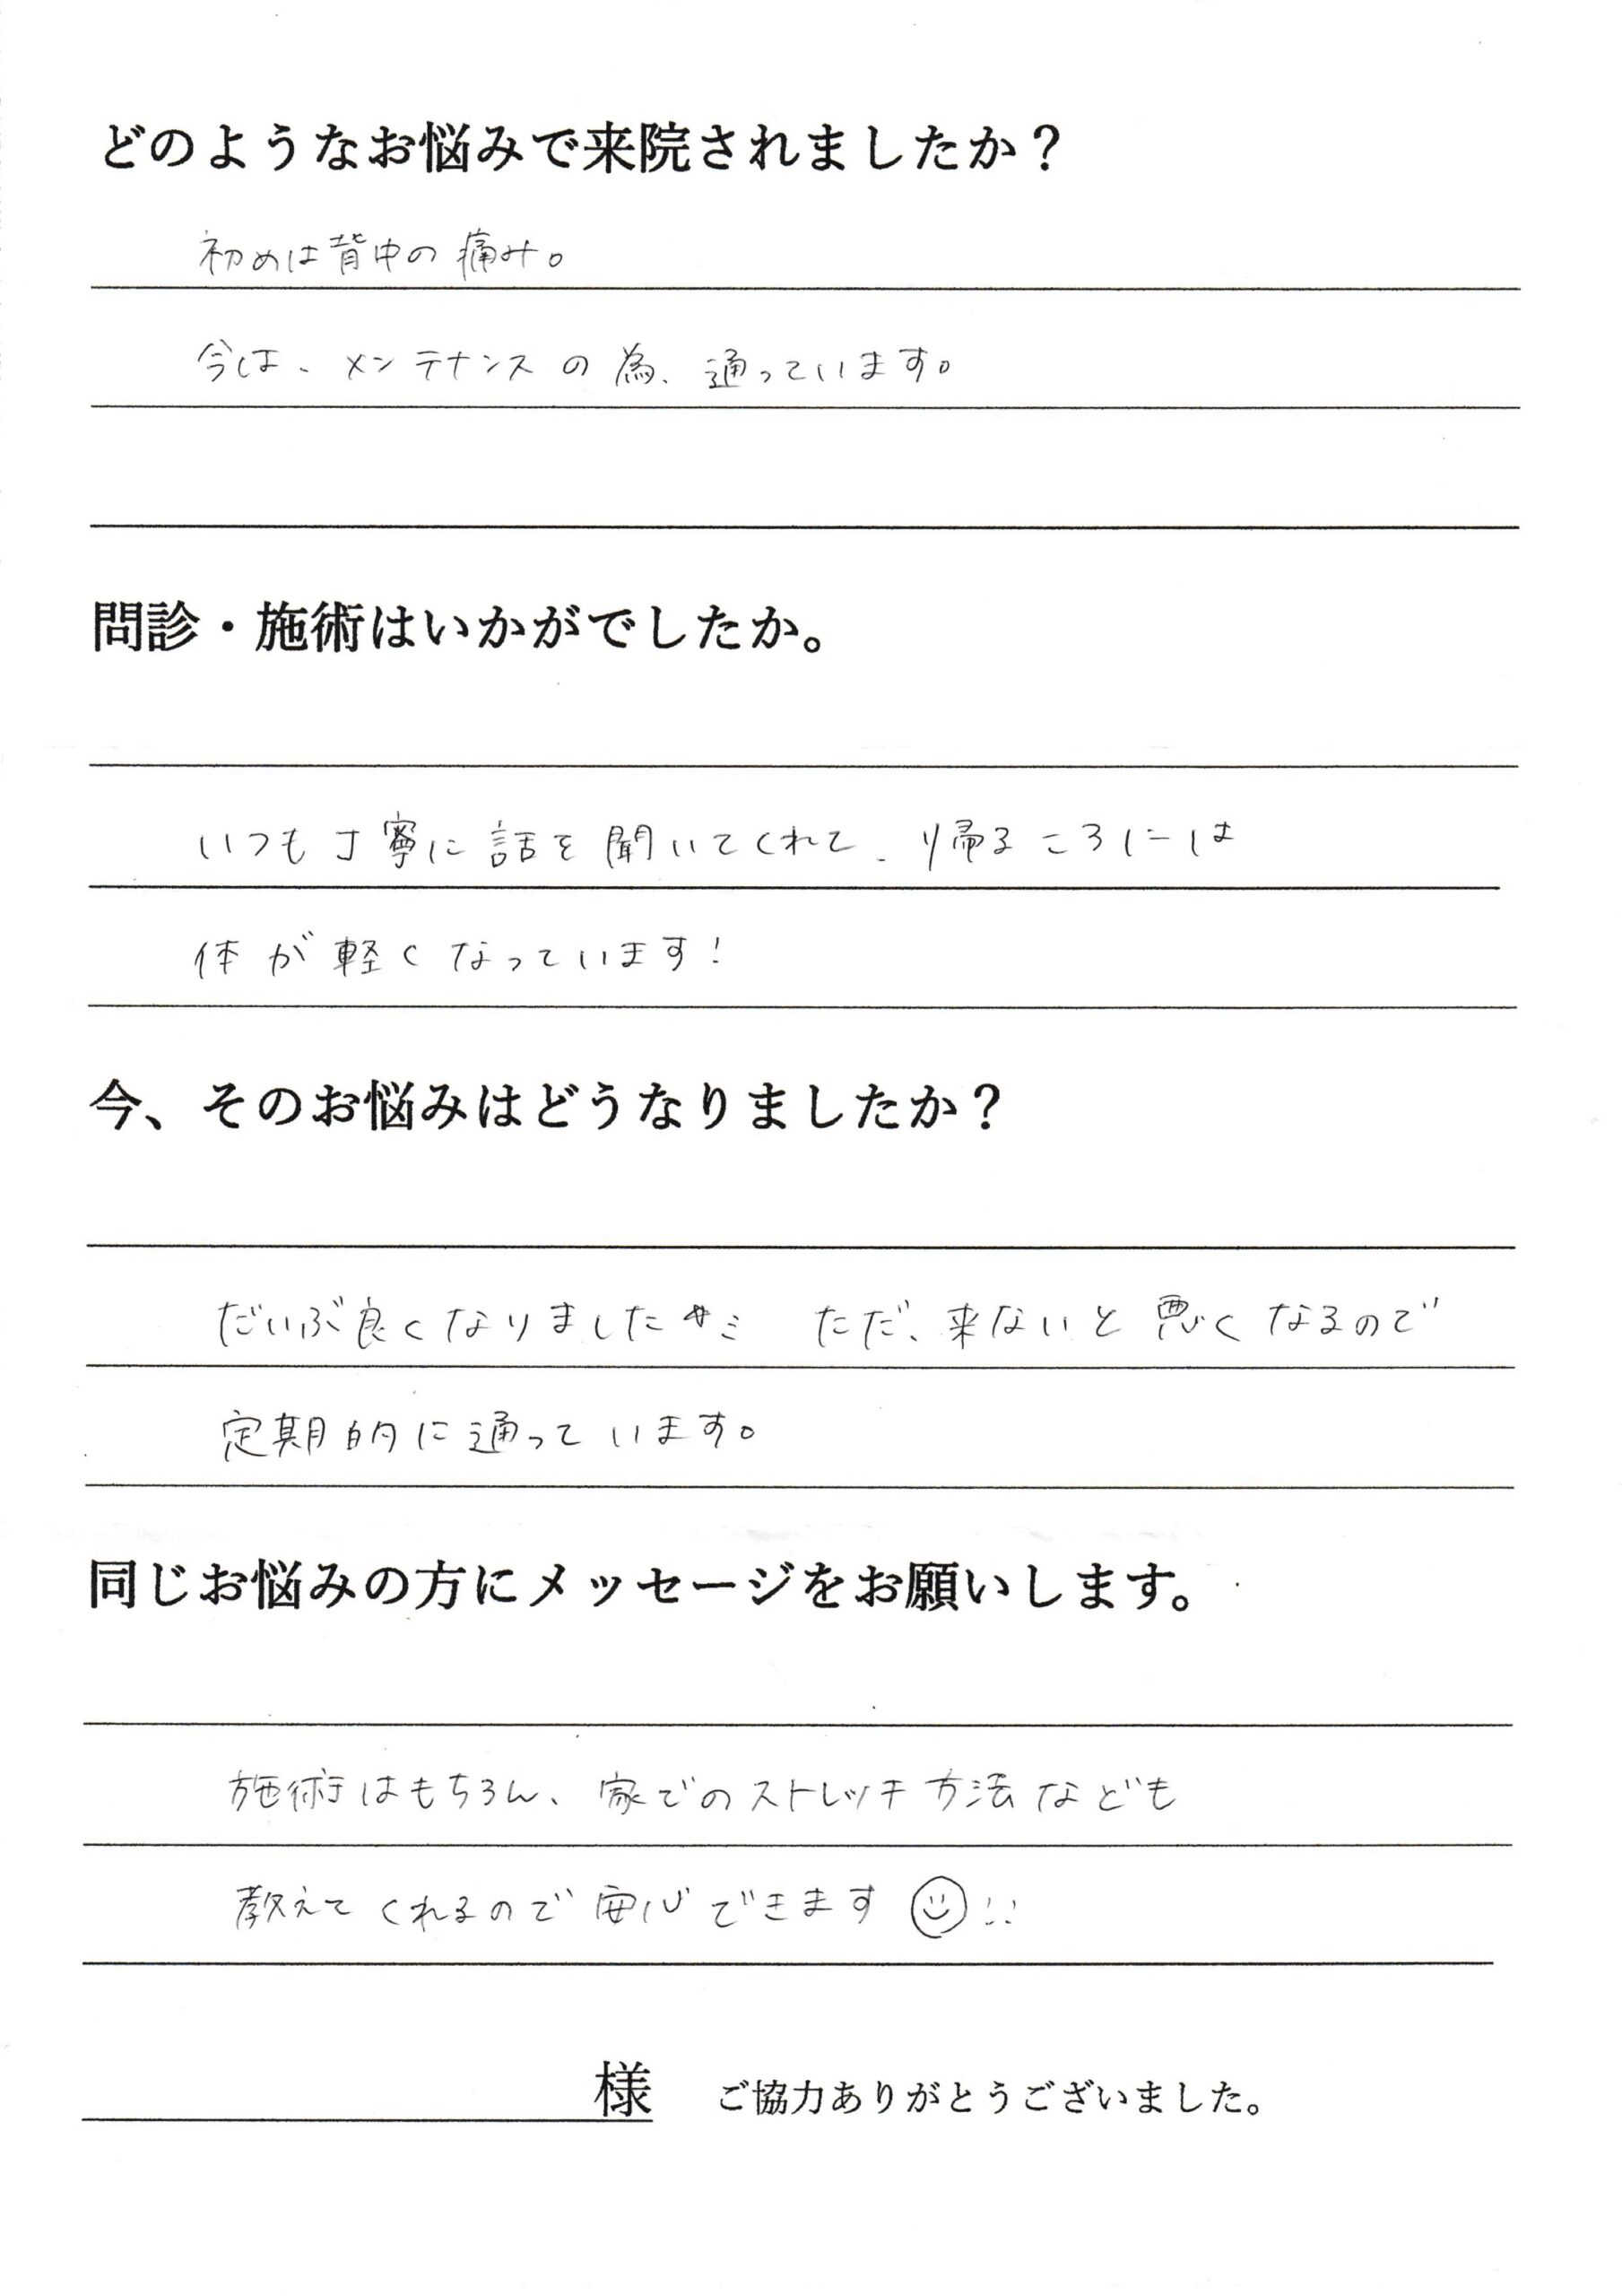 どのようなお悩みで来院されましたか？
初めは背中の痛み。
今は、メンテナンスの為、通っています。
問診・施術はいかがでしたか。
いつも丁寧に話を聞いてくれて、帰るころには
体が軽くなっています！
今、そのお悩みはどうなりましたか？
だいぶ良くなりました ただ、来ないと悪くなるので
定期的に通っています。
同じお悩みの方にメッセージをお願いします。
施術はもちろん、家でのストレッチ方法なども
教えてくれるので安心できます☺!!
様 ご協力ありがとうございました。